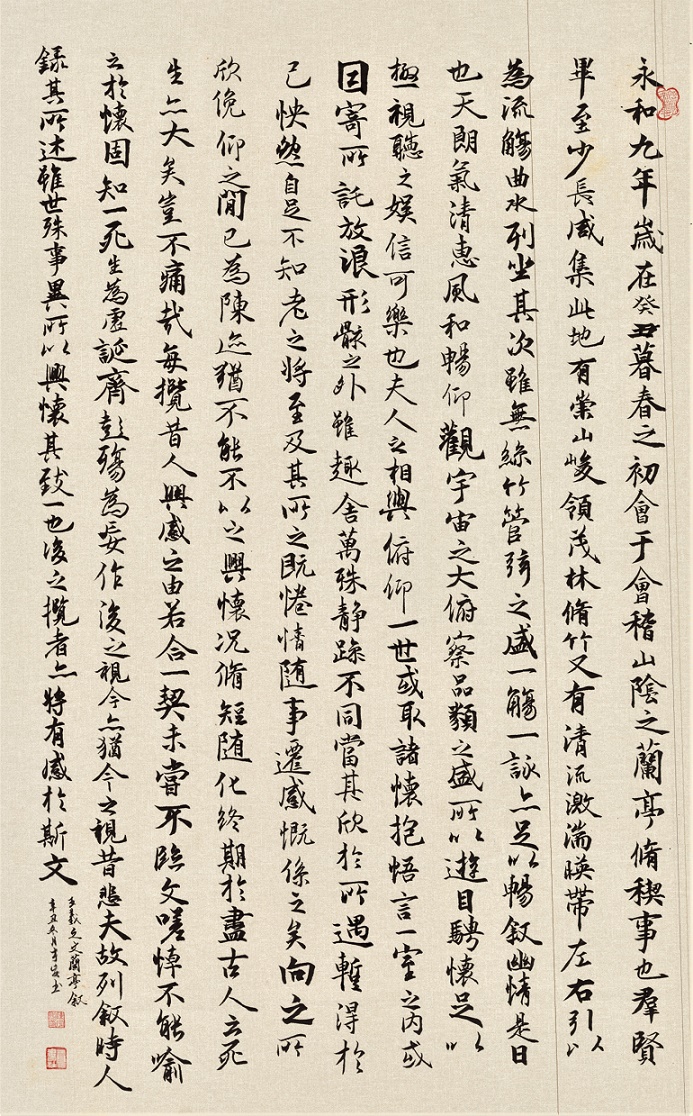 永和九年歲在癸丑暮春之初會于會稽山陰之蘭亭脩稧事也羣賢
畢至少長咸集此地有崇山峻領茂林脩竹又有清流激湍暎帶左右引以
為流觴曲水列坐其次雖無絲竹管弦之盛一觴一詠亦足以暢叙幽情是日
也天朗氣清惠風和暢仰觀宇宙之大俯察品類之盛所以遊目騁懷足以
極視聽之娛信可樂也夫人之相與俯仰一世或取諸懷抱悟言一室之內或
因寄所託放浪形骸之外雖趣舍萬殊静躁不同當其欣於所遇暫得於
己怏然自足不知老之將至及其所之既惓情随事遷感慨係之矣向之所
欣俛仰之閒已為陳迹猶不能不以之興懷况脩短随化終期於盡古人云死
生亦大矣豈不痛哉每攬昔人興感之由若合一契未嘗不臨文嗟悼不能喻
之於懷固知一死生為虛誕齊彭殤為妄作後之視今亦猶今之視昔悲夫故列叙時人
錄其所述雖世殊事異所以興懷其致一也後之攬者亦將有感於斯文
王羲之文蘭亭叙
辛丑冬月